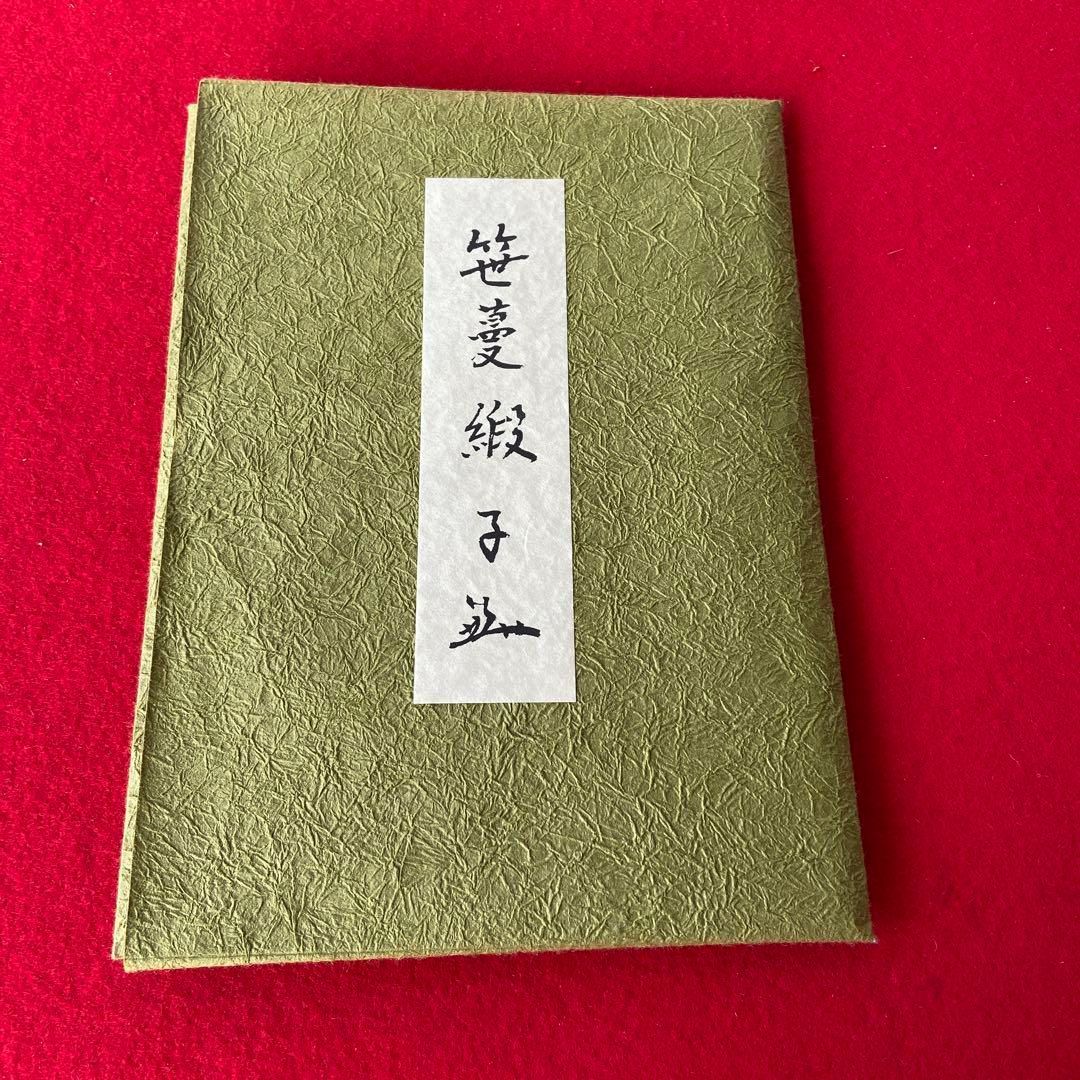 笹蔓緞子